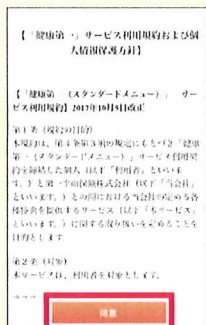 【「健康第一」サービス利用規約および個
人情報保護方針】
【「健康第一（スタンダードメニュー）」 サー
ビス利用規約】2017年10月5日改正
第1条（規約の目的）
本規約は、第4条第3項の規定にもとづき「健康
第一（スタンダードメニュー）」サービス利用契
約を締結した個人（以下「利用者」といいま
す。）と第一生命保険株式会社（以下「当会社」
といいます。）との間における当会社の定める各
種特典を提供するサービス（以下「本サービス」
といいます。）に関する取り扱いを定めることを
目的とします。
第2条（対象）
本サービスは、利用者を対象とします。
同意